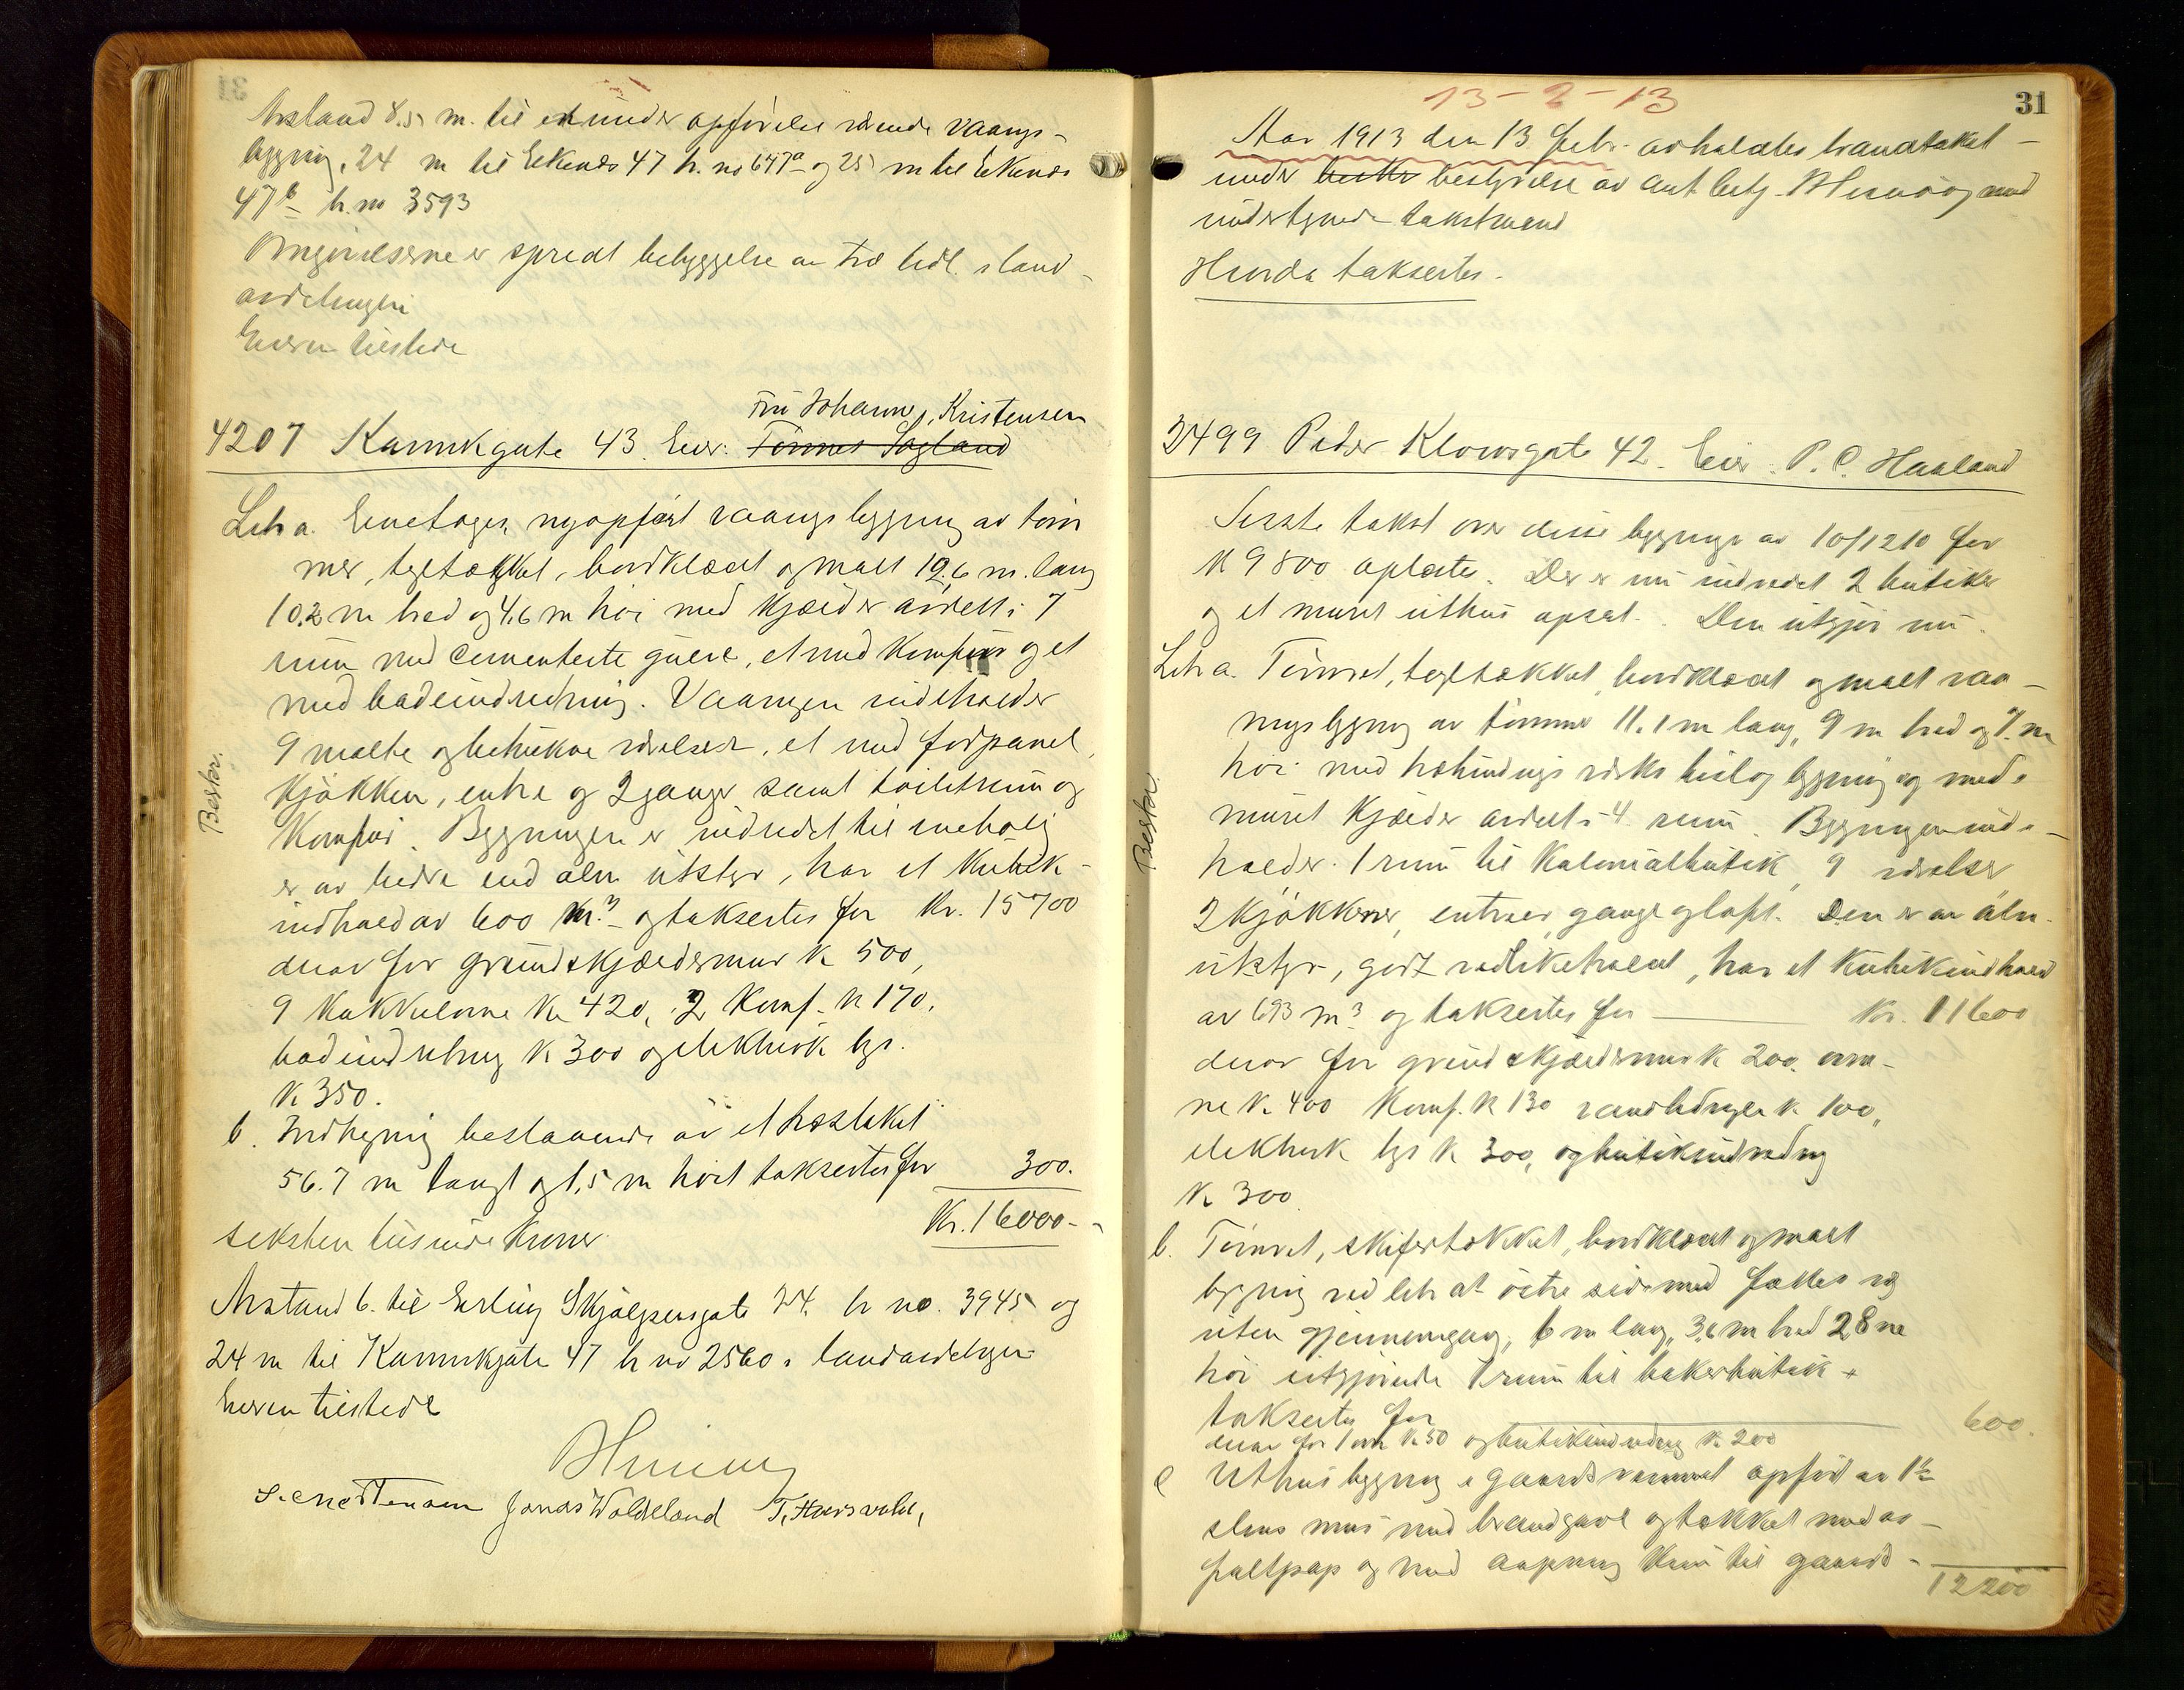 Avstand 8.5 m. til en under opførelse værende vaanings-
bygning, 24 m til Eikends 47 br. no 647a og 25 m til Eikends
47b br. no 3593
Omgivelserne er spredt bebyggelse av træ bel. i land-
avdelingen
Eieren tilstede
Fru Johanne J. Kristensen
4207 Kannikgate 43. Eier: Tönnes Sagland
Litra a. Eenetages, nyopført vaaningsbygning av töm
mer, tegltækket, bordklædt og malt 12.6 m. lang
10.2 m bred og 4.6 m høi med kjælder avdelt i 7
rum med cementerte gulve, et med komfur og et
med badeindredning. Vaaningen indeholder
9 malte og betrukne værelser, et med fodpanel,
kjøkken, entre og 2 ganger samt toiletrum og
komfur. Bygningen er indredet til enebolig
er av bedre end alm utstyr, har et kubik-
indhold av 600 m.3 og takseres for Kr. 15700
derav for grund & kjældermur K 500,
9 kakkelovne K 420, 2 Komf. K 170,
badeindretning K 300 og elektrisk lys.
K 350.
b. Indhegning bestaaende av et træstaket
56.7 m langt og 1,5 m høit takseres for 300.
Kr. 16000.-
seksten tusinde kroner
Avstand 6. til Erling Skjalgsonsgate 24. br no. 3945 og
24 m til Kannikgate 47 br no 2560 i landavdelingen
Eieren tilstede
Jonas Woldeland T. Hausvold,
Beskr.
13-2-13
31
Aar 1913 den 13 febr. avholdtes brandtakst
under bestyrelse av amt. betj. og med
undertegnede takstmænd
Hvorda takseres.
3499 Peder Klowsgate 42. Eier: P. C. Haaland
Sisste takst over disse bygninger av 10/12 10 for
K 9800 oplæstes. Der er nu indredet 2 butiker
og et muret uthus opsat. Den utgjør nu.
Litra a. Tömret, tegltækket, bordklædt og malt vaa-
ningsbygning av tømmer 11.1 m lang, 9 m bred og 7. m
høi med træbindings bislagbygning og med
muret kjælder avdelt i 4 rum. Bygningen inde-
holder 1 rum til Kolonialbutik, 9 værelser
2 kjøkkener, entreer, gange og loft. Den er av alm.
utstyr, godt vedlikeholdt, har et kubikindhold
av 693 m3 og takseres for Kr. 11600
derav for grund & kjældermur K 200. ovn-
ne K 400 Komf. K 130 vandledninger K 100,
elektrisk lys K 300, og butiksindredning
K 300.
b. Tömret, skifertækket, bordklædt og malt
bygning ved litr a's østre side med fælles væg
uten gjennemgang, 6 m lang, 3,6 m bred 2,8 m
høi utgjørende 1 rum til bakerbutik
takseres for 600.
derav for 1 ovn K 50 og butikindredning K 200
c Uthusbygning i gaardsrummet opført av 1½
stens mur med brandgavl og tækket med as-
faltpap og med aapning kun til gaard-
12200
Beskr.